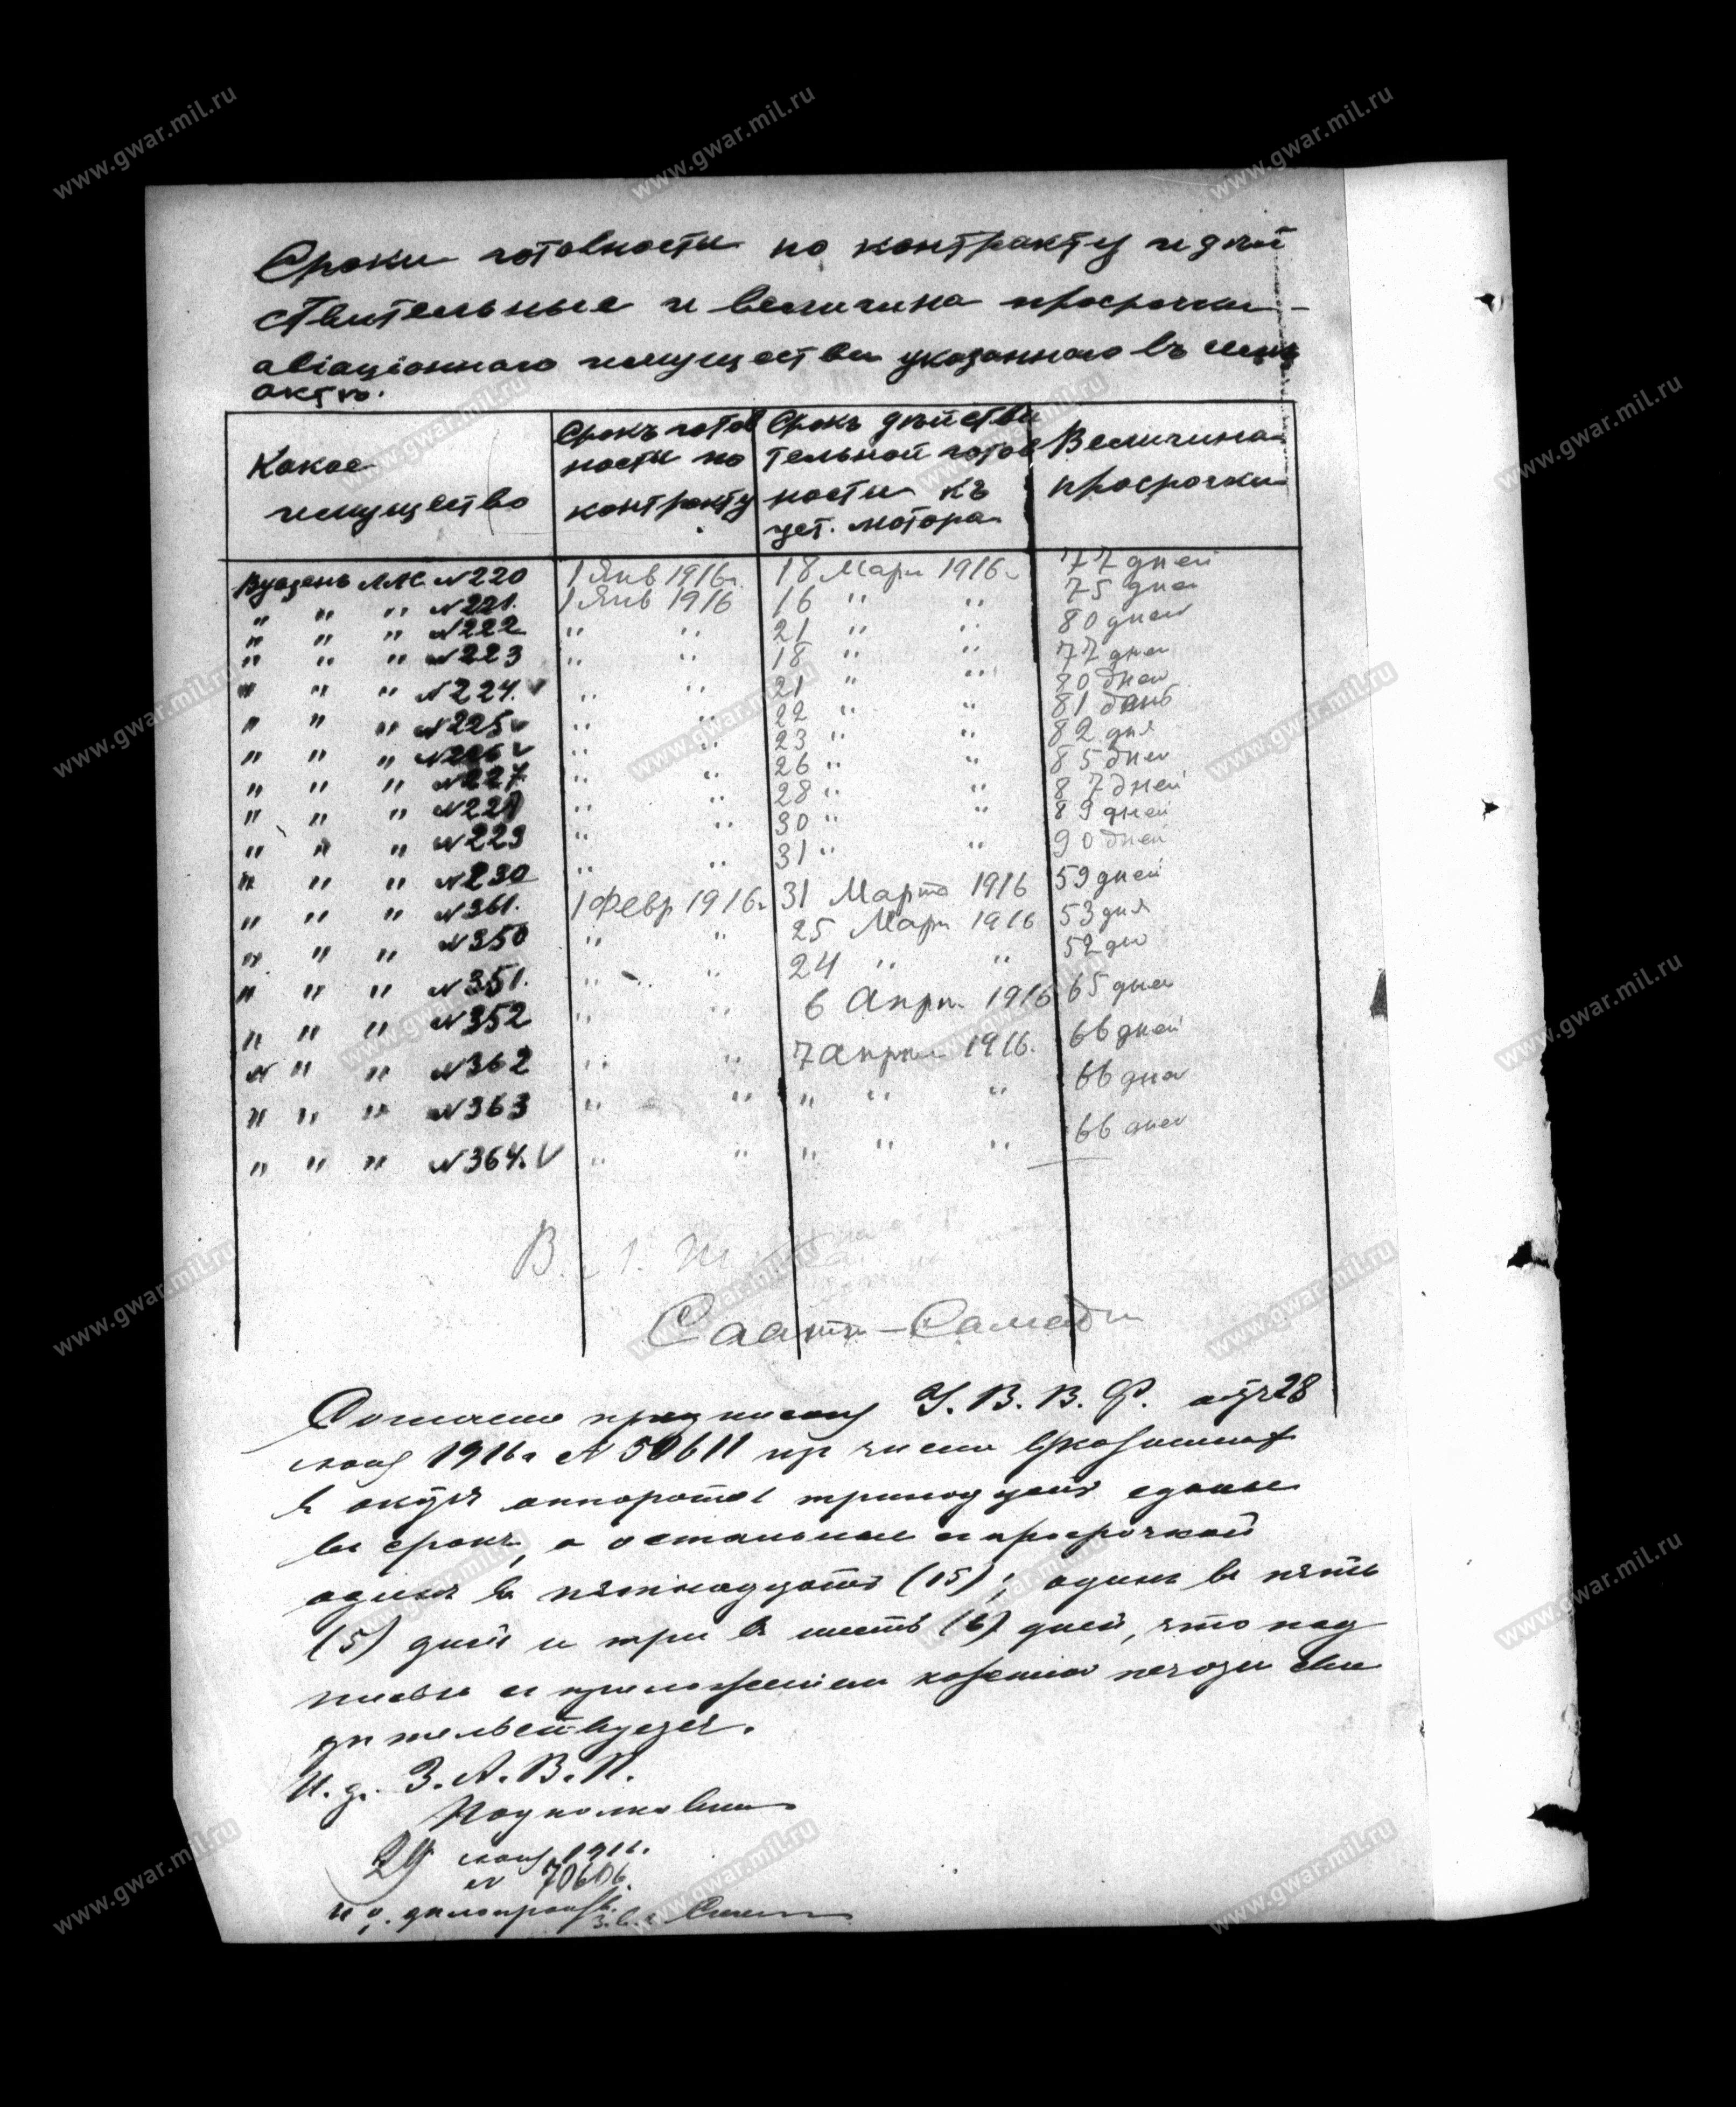 Сроки готовности по контракту и дѣй
ствительные и величина просрочки
авіаціоннаго имущества указаннаго въ семъ
актѣ.
Какое имущество
Срокъ готов ности по контракту
Срокъ дѣйстви тельной готов ности къ уст. мотора
Величина просрочки
Вуазенъ ЛАС №220 1 Янв 1916г. 18 Март 1916г 77 дней
" " " №221. 1 Янв 1916 16 " " 75 дней
" " " №222 " " 21 " " 80 дней
" " " №223 " " 18 " " 77 дней
" " " №224. v " " 21 " " 80 дней
" " " №225 v " " 22 " " 81 день
" " " №226 v " " 23 " " 82 дня
" " " №227. " " 26 " " 85 дней
" " " №228 " " 28 " " 87 дней
" " " №229 " " 30 " " 89 дней
" " " №230 " " 31 " " 90 дней
" " " №361. 1 Февр 1916г. 31 Марта 1916 59 дней
" " " №350 " " 25 Март 1916 53 дня
" " " №351. " " 24 " " 52 дн
" " " №352 " " 6 Апрл 1916 65 дней
" " " №362 " " 7 Апрл 1916. 66 дней
" " " №363 " " " " " 66 дней
" " " №364. V " " " " " 66 дней
В.
Согласно предписанія У. В. В. Ф. отъ 28
мая 1916г № 50611 изъ числа указанныхъ
въ актѣ аппаратовъ тринадцать сданы
въ срокъ, а остальные съ просрочкой
одинъ въ пятнадцать (15); одинъ въ пять
(5) дней и три въ шесть (6) дней, что под
писью съ приложеніемъ казенной печати сви
дѣтельствуется.
И. д. З. А. В. П.
Подполковникъ
29 мая 1916.
№ 70606.
И. д. дѣлопроизв.